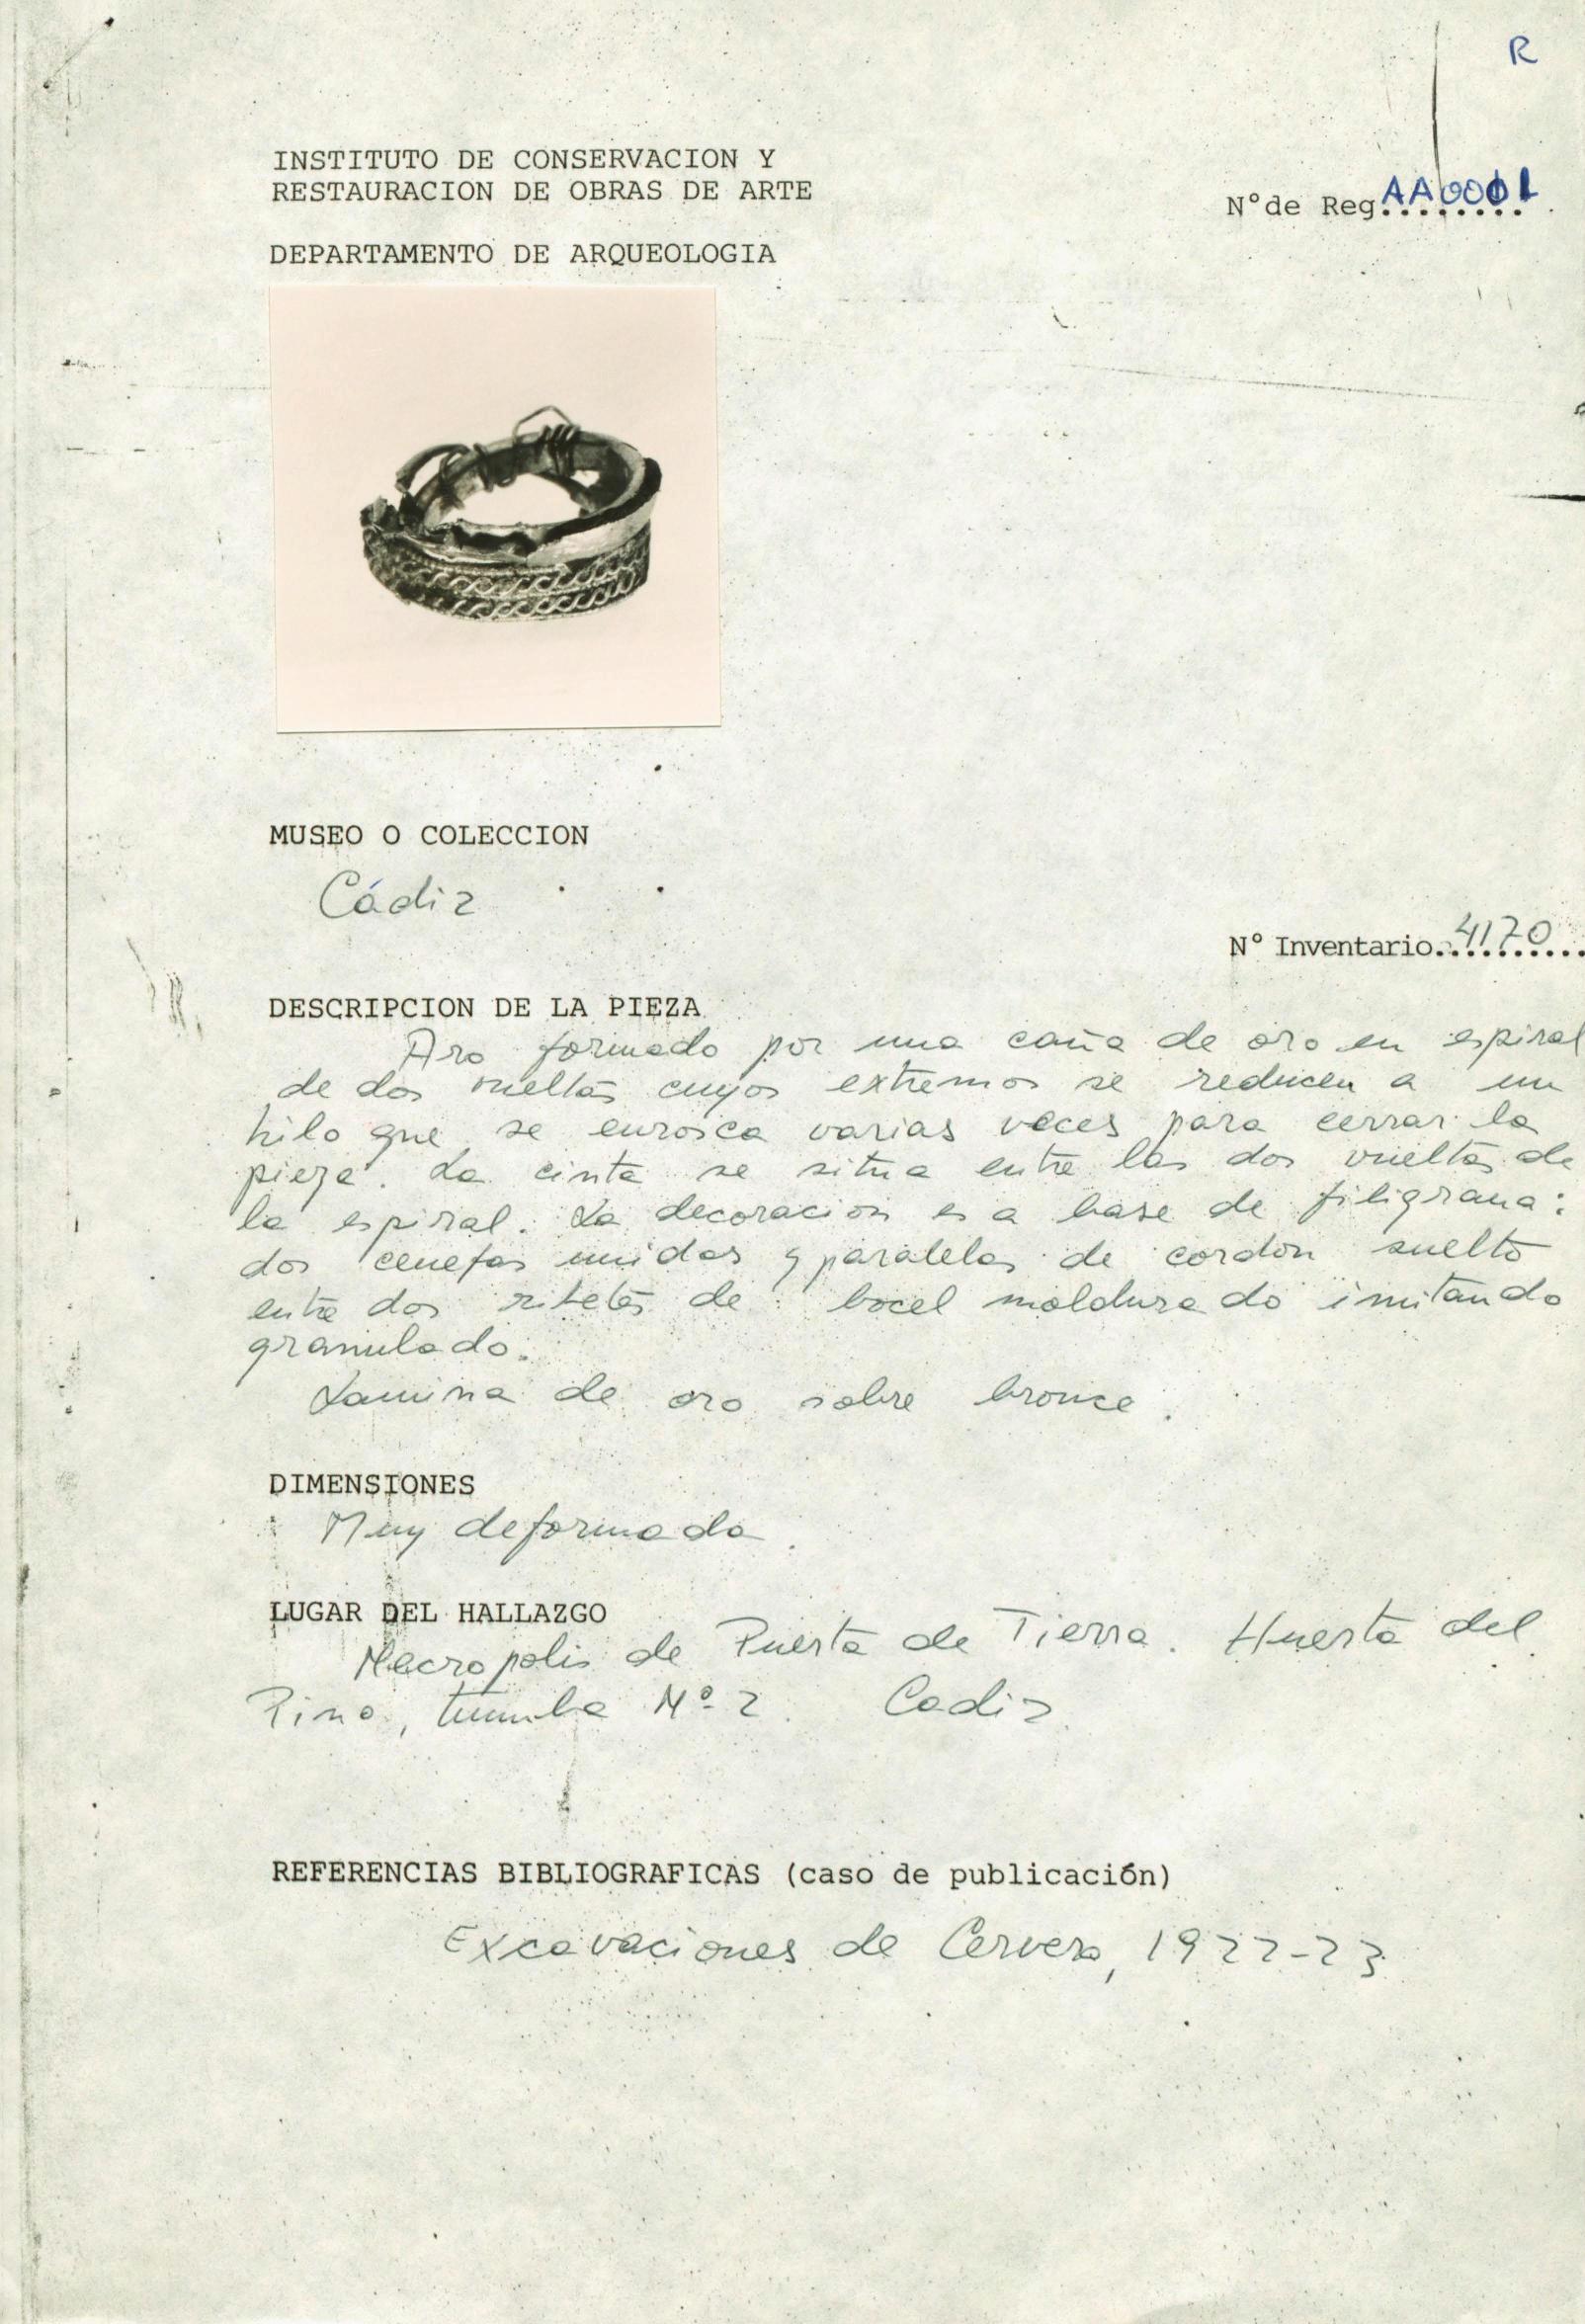 R
INSTITUTO DE CONSERVACION Y
RESTAURACION DE OBRAS DE ARTE
Nº de Reg. AA0001
DEPARTAMENTO DE ARQUEOLOGIA
MUSEO O COLECCION
Cádiz
Nº Inventario 4170
DESCRIPCION DE LA PIEZA
Aro formado por una caña de oro en espiral
de dos vueltas cuyos extremos se reducen a un
hilo que se enrosca varias veces para cerrar la
pieza. La cinta se situa entre las dos vueltas de
la espiral. La decoracion es a base de filigrana:
dos cenefas unidas y paralelas de cordon suelto
entre dos ribetes de bocel moldurado imitando
granulado.
Lamina de oro sobre bronce.
DIMENSIONES
Muy deformada.
LUGAR DEL HALLAZGO
Necropolis de Puerta de Tierra. Huerta del
Pino, tumba Nº 2. Cadiz.
REFERENCIAS BIBLIOGRAFICAS (caso de publicación)
Excavaciones de Cervera, 1922-23